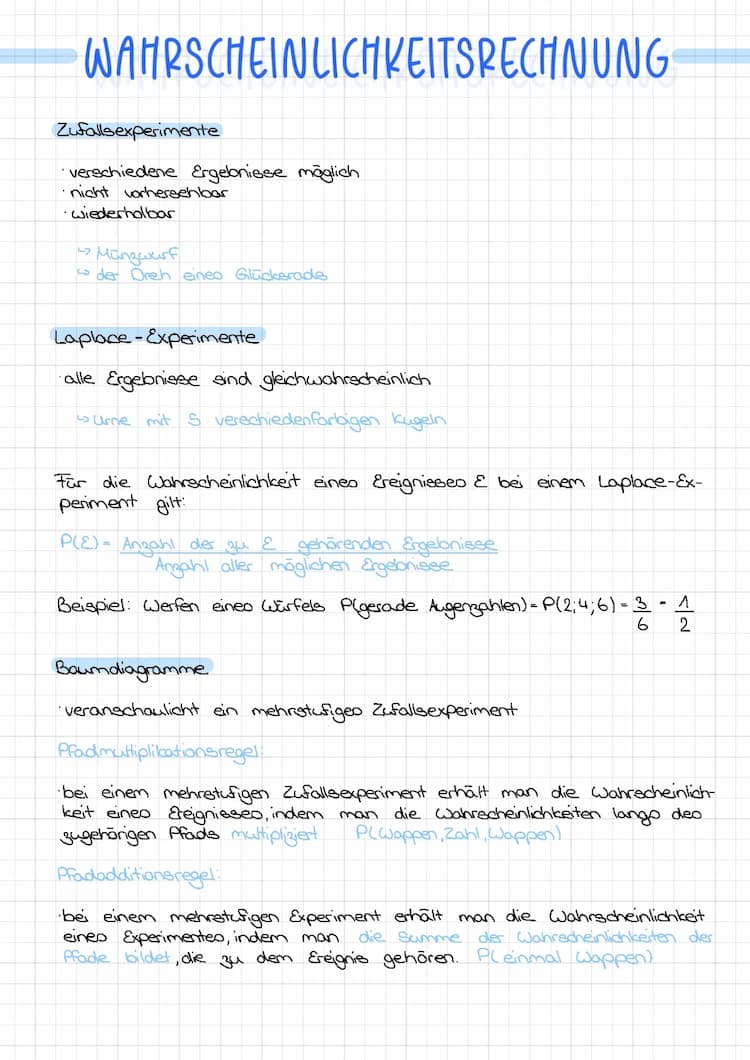 WAHRSCHEINLICHKEITSRECHNUNG
Zufallsexperimente
· verschiedene Ergebnisse möglich
· nicht vorhersehbar
· wiederholbar
↳ Münzwurf
↳ der Dreh eines Glücksrads
Laplace-Experimente
· alle Ergebnisse sind gleichwahrscheinlich
↳ Urne mit 5 verschiedenfarbigen Kugeln
Für die Wahrscheinlichkeit eines Ereignisses E bei einem Laplace-Ex-
periment gilt:
P(E) = Anzahl der zu E gehörenden Ergebnisse
Anzahl aller möglichen Ergebnisse
Beispiel: Werfen eines Würfels P(gerade Augenzahlen) = P(2;4;6) = 3/6 = 1/2
Baumdiagramme
· veranschaulicht ein mehrstufiges Zufallsexperiment
Pfadmultiplikationsregel:
· bei einem mehrstufigen Zufallsexperiment erhält man die Wahrscheinlich-
keit eines Ereignisses, indem man die Wahrscheinlichkeiten langs des
zugehörigen Pfads multipliziert P(Wappen, Zahl, Wappen)
Pfadadditionsregel:
· bei einem mehrstufigen Experiment erhält man die Wahrscheinlichkeit
eines Experimentes, indem man die Summe der Wahrscheinlichkeiten der
Pfade bildet, die zu dem Ereignis gehören. P(einmal Wappen)